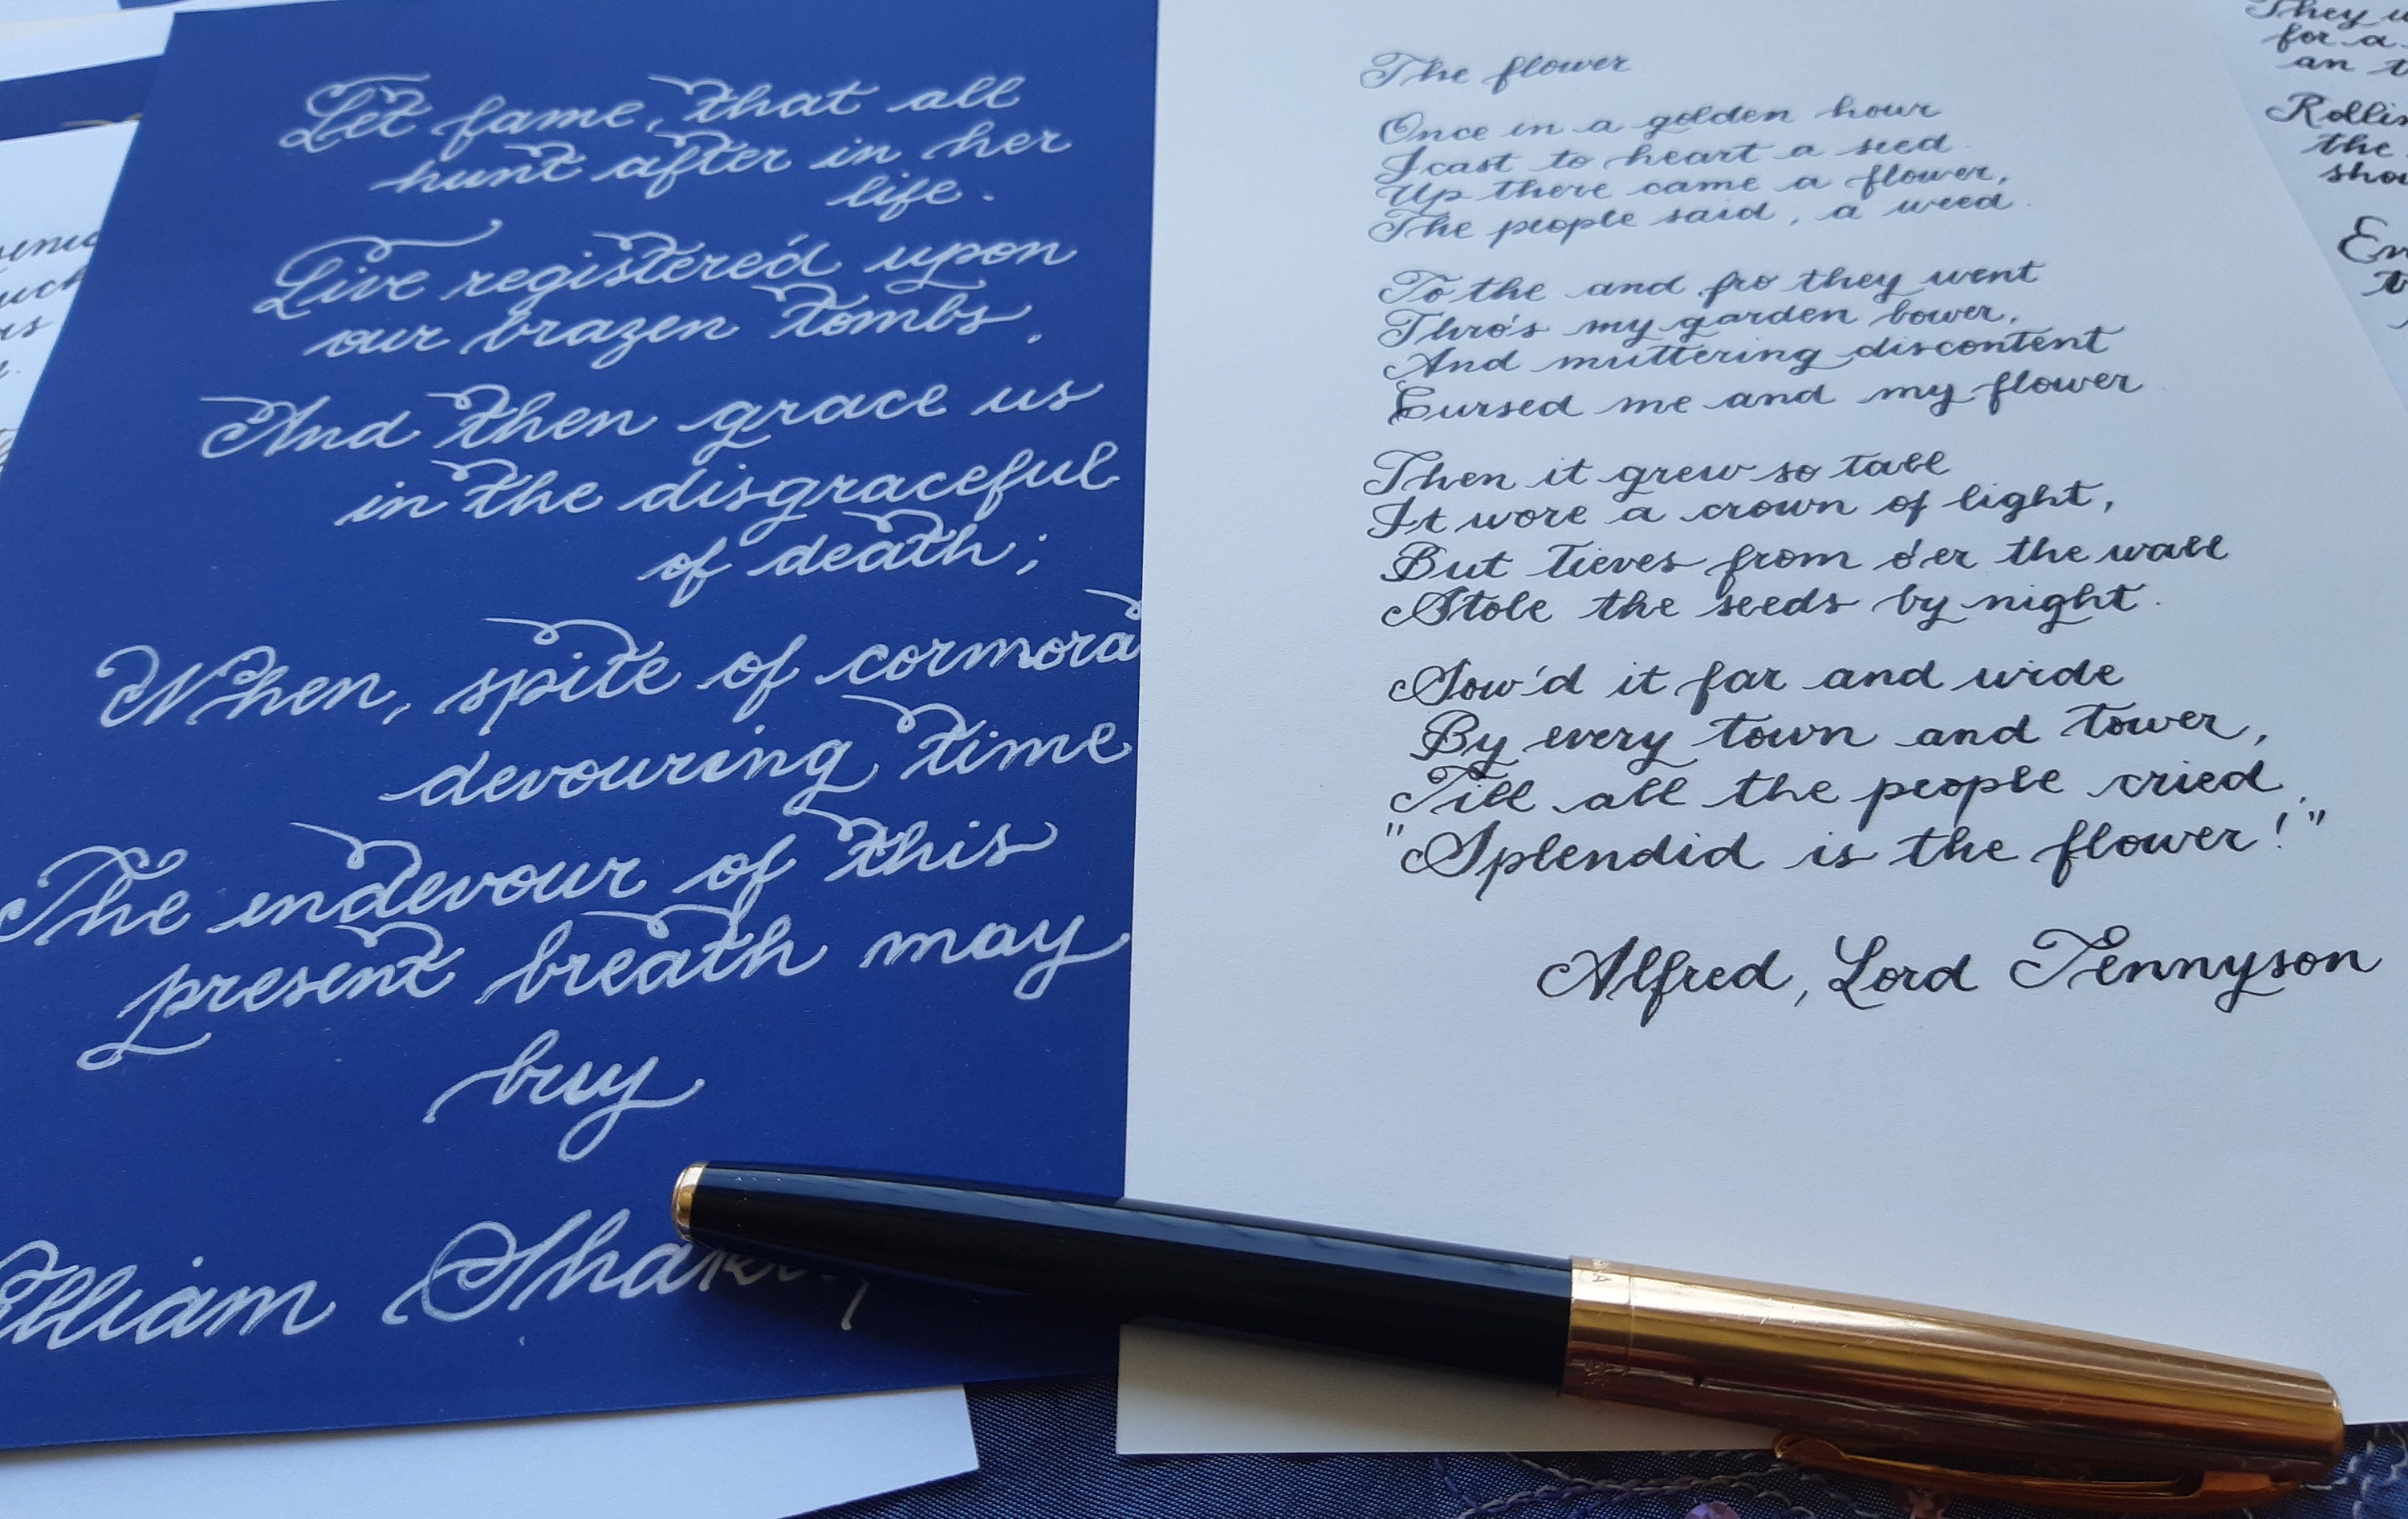 Let fame, that all
hunt after in her
life.
Live registered upon
our brazen tombs.
And then grace us
in the disgraceful
of death;
When, spite of cormora
devouring time
The endevour of this
present breath may
buy
illiam Shakesp
The flower
Once in a golden hour
I cast to heart a seed
Up there came a flower,
The people said, a weed.
To the and fro they went
Thro's my garden bower,
And muttering discontent
Cursed me and my flower
Then it grew so tall
It wore a crown of light,
But tieves from o'er the wall
Stole the seeds by night.
Sow'd it far and wide
By every town and tower,
Till all the people cried,
"Splendid is the flower!"
Alfred, Lord Tennyson
They
for a
an
Rollin
the
shou